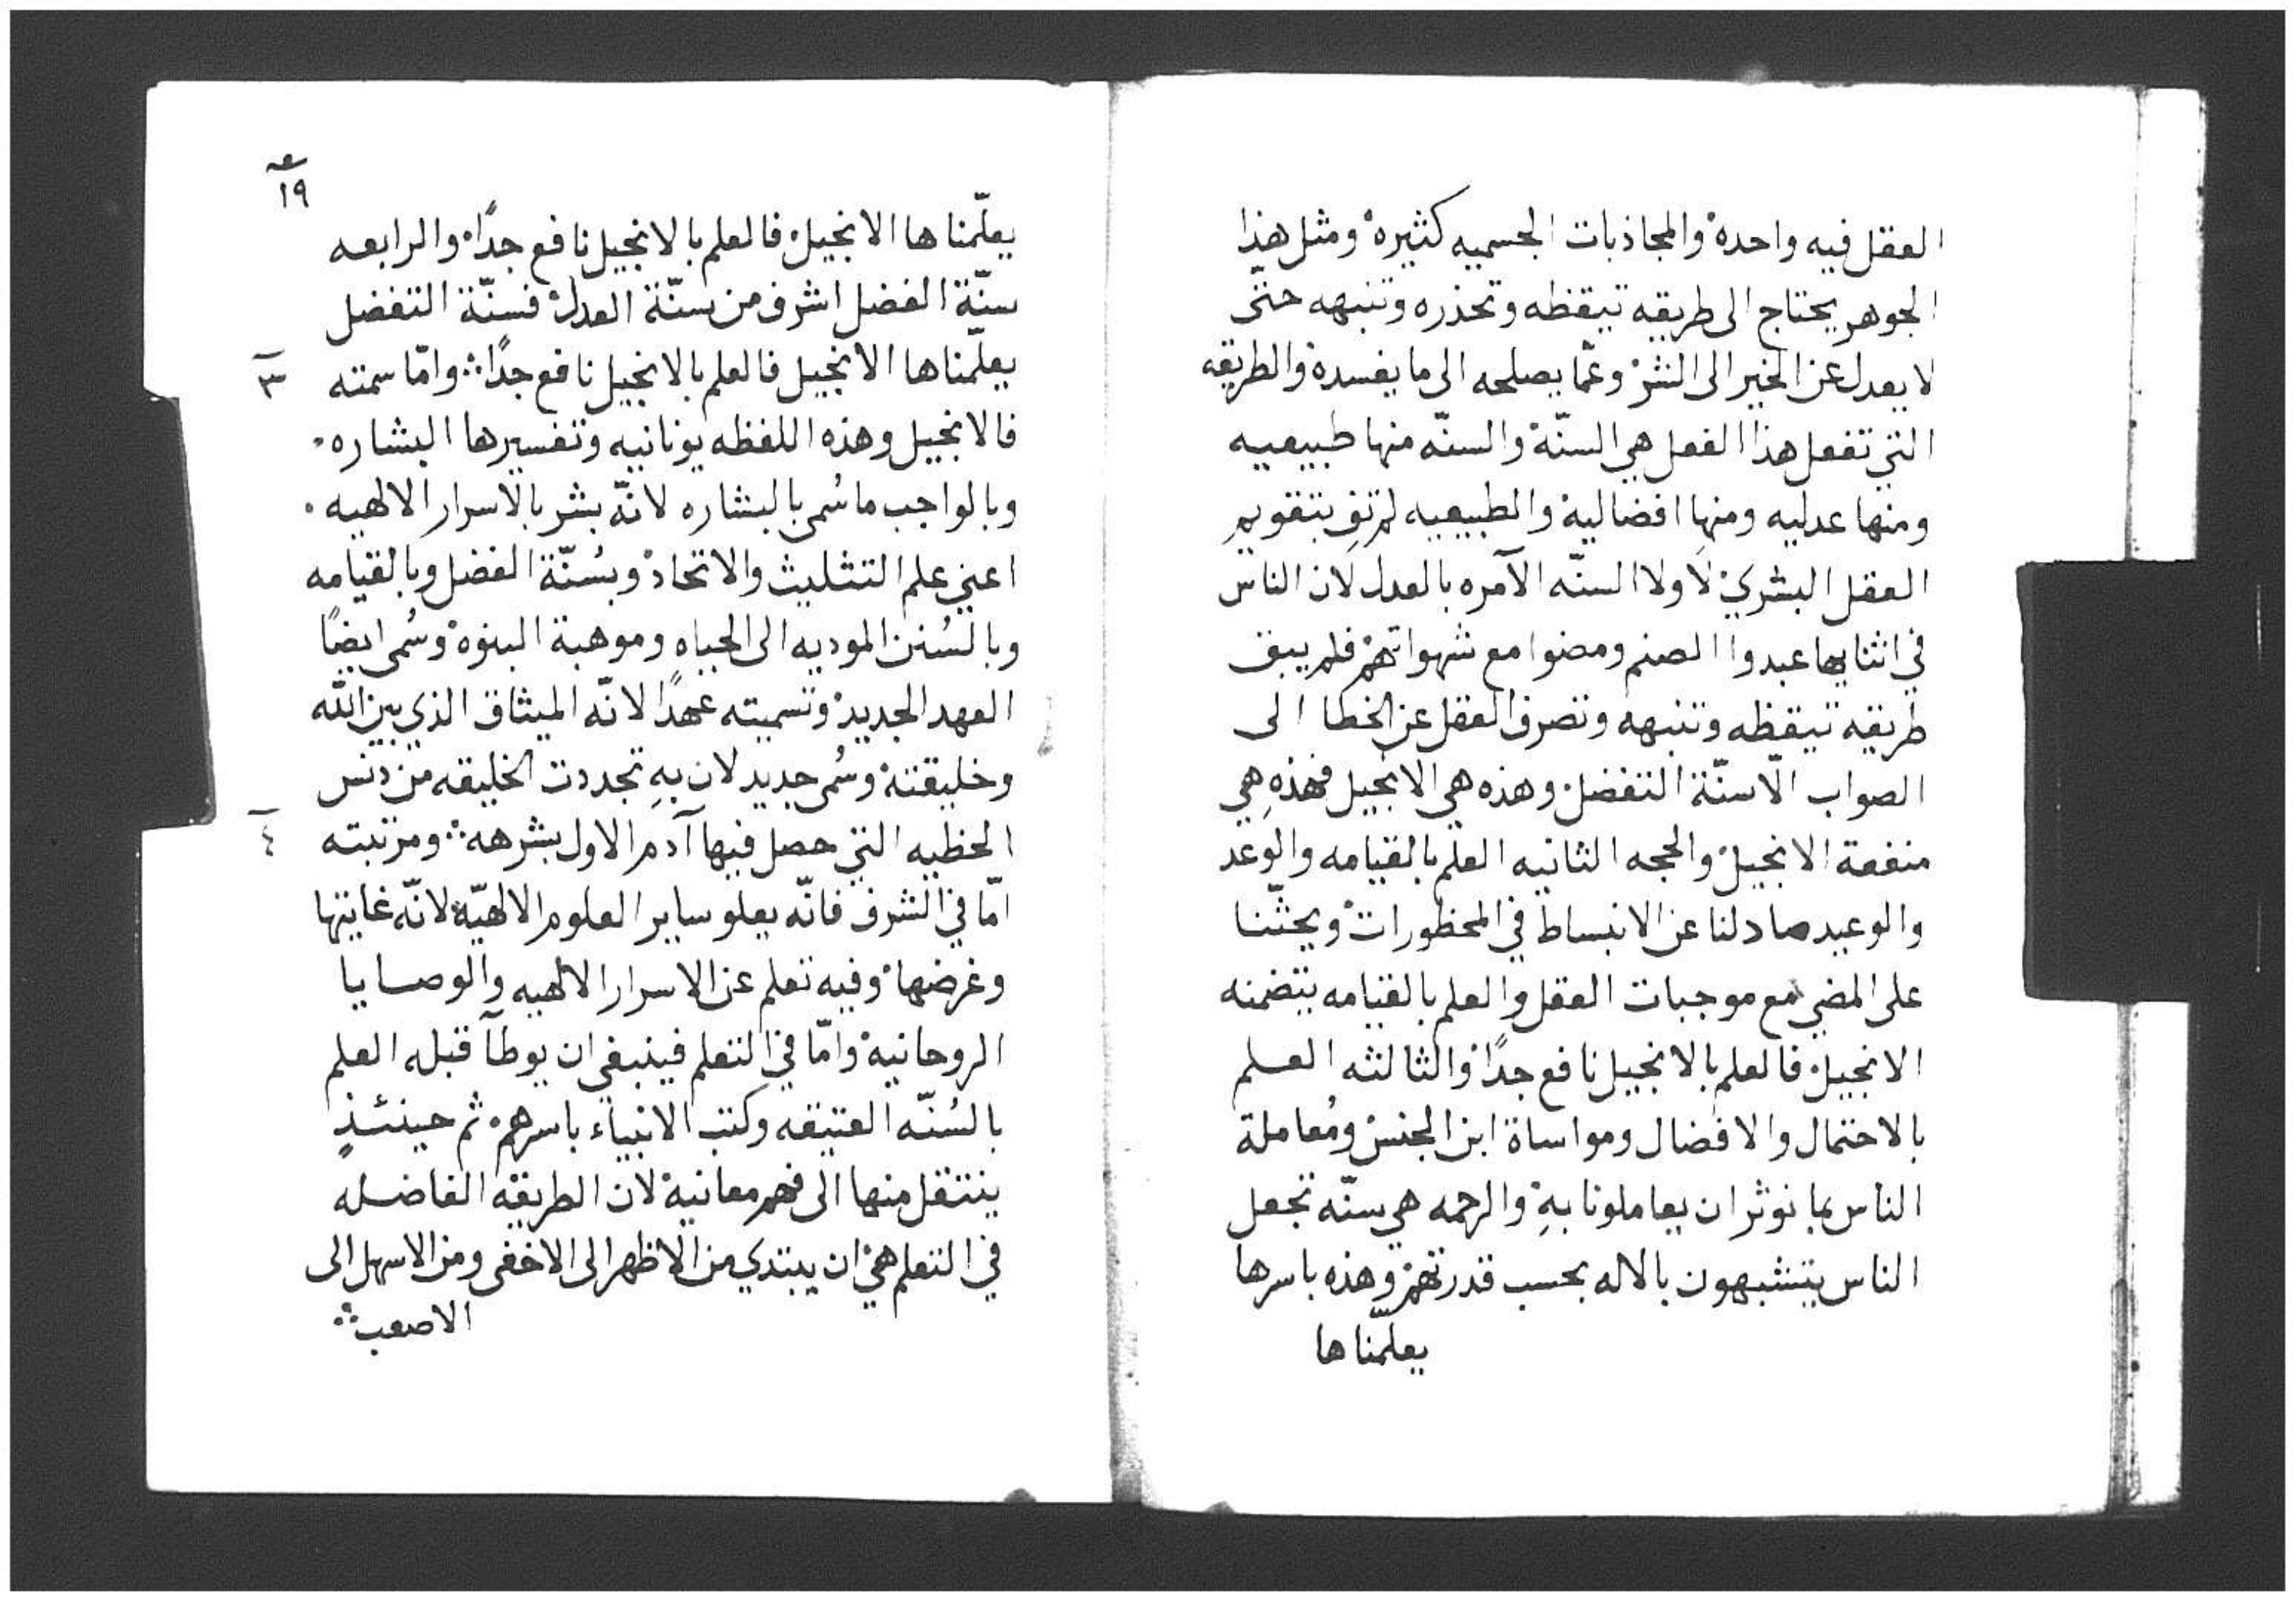 العقل فيه واحدة والمجاذبات الجسميه كثيرة ومثل هذا
الجوهر يحتاج الى طريقه تيقظه وتحذره وتنبهه حتّى
لا يعدل عن الخير الى الشر وعمّا يصلحه الى ما يفسده والطريقه
التي تفعل هذا الفعل هي السنّة والسنّه منها طبيعيه
ومنها عدليه ومنها افضالية والطبيعيه لم تفِ بتقويم
العقل البشري لا ولا السنّه الآمره بالعدل لان الناس
في اثنايها عبدوا الصنم ومضوا مع شهواتهم فلم يبق
طريقه تيقظه وتنبهه وتصرف العقل عن الخطا الى
الصواب الّا سنّة التفضل وهذه هي الانجيل فهذهِ هي
منفعة الانجيل والحجه الثانيه العلم بالقيامه والوعد
والوعيد صادلنا عن الانبساط في المحظورات ويحثّنا
على المضي مع موجبات العقل والعلم بالقيامه يتضمنه
الانجيل فالعلم بالانجيل نافع جدًا والثالثه العلم
بالاحتمال والافضال ومواساة ابن الجنس ومُعاملة
الناس بما نوثر ان يعاملونا بهِ والرحمه هي سنّه تجعل
الناس يتشبهون بالاله بحسب قدرتهم وهذه باسرها
يعلّمنا ها
١٩
يعلّمنا ها الانجيل فالعلم بالانجيل نافع جدًا والرابعه
سنّة الفضل اشرف من سنّة العدل فسنّة التفضل
يعلّمنا ها الانجيل فالعلم بالانجيل نافع جدًا وامّا سمته
٣
فالانجيل وهذه اللفظه يونانيه وتفسيرها البشاره
وبالواجب ما سُمى بالبشاره لانّه بشر بالاسرار الالهيه
اعني علم التثليث والاتحاد وبسُنّة الفضل وبالقيامه
وبالسُنن الموديه الى الحياه وموهبة البنوة وسُمى ايضًا
العهد الجديد وتسميته عهدًا لانّه الميثاق الذي بين الله
وخليقته وسُمى جديد لان بهِ تجددت الخليقه من دنس
الخطيه التي حصل فيها آدم الاول بشرهه ومرتبته
٤
امّا في الشرف فانّه يعلو ساير العلوم الالهيّة لانّه غايتها
وغرضها وفيه تعلم عن الاسرار الالهيه والوصايا
الروحانية وامّا في التعلم فينبغي ان يوطآ قبله العلم
بالسُنّه العتيقه وكتب الانبياء باسرهم ثم حينئذٍ
ينتقل منها الى فهم معانيه لان الطريقه الفاضله
في التعلم هي ان يبتدي من الاظهر الى الاخفى ومن الاسهل الى
الاصعب